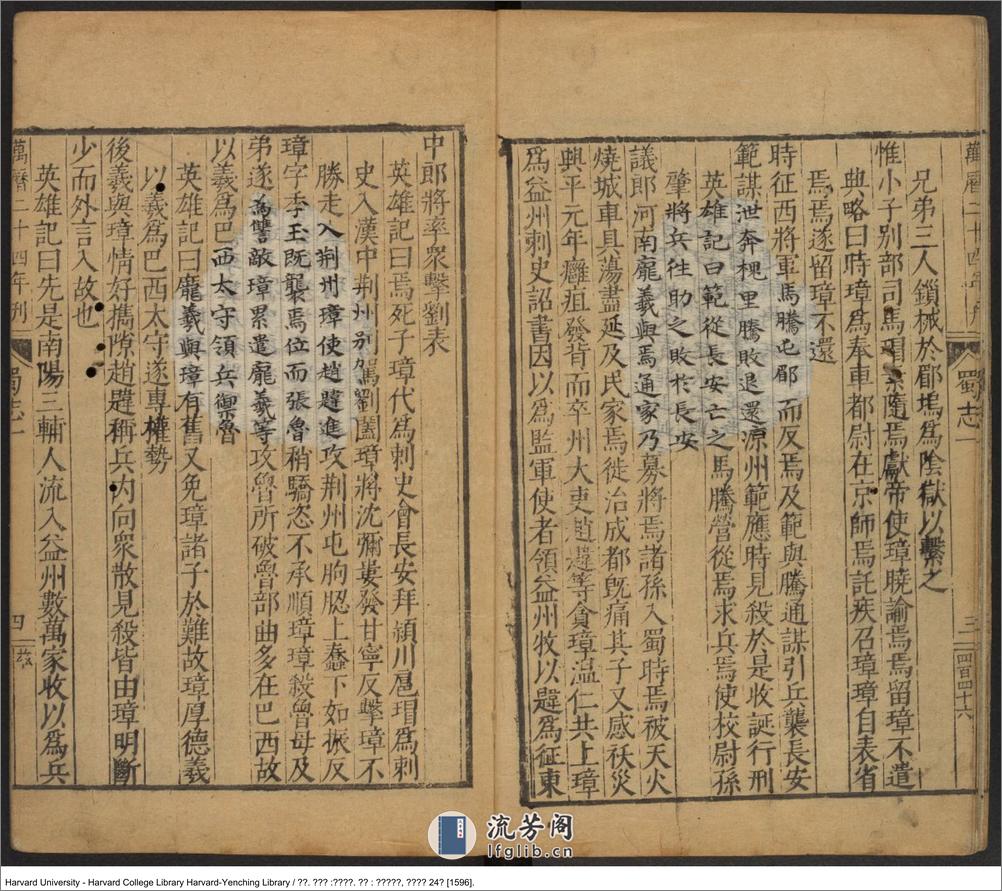 萬曆二十四年刋
蜀志一
三
四百四十六
兄弟三人鎖械於郿塢爲陰獄以繫之
惟小子别部司馬瑁素隨焉獻帝使璋曉諭焉焉留璋不遣
典略曰時璋爲奉車都尉在京師焉託疾召璋璋自表省
焉焉遂留璋不還
時征西將軍馬騰屯郿而反焉及範與騰通謀引兵襲長安
範謀泄奔槐里騰敗退還涼州範應時見殺於是收誕行刑
英雄記曰範從長安亡之馬騰營從焉求兵焉使校尉孫
肇將兵往助之敗於長安
議郎河南龐羲與焉通家乃募將焉諸孫入蜀時焉被天火
燒城車具蕩盡延及民家焉徙治成都既痛其子又感祅災
興平元年癰疽發背而卒州大吏趙韙等貪璋温仁共上璋
爲益州刺史詔書因以爲監軍使者領益州牧以韙爲征東
中郎將率衆擊劉表
英雄記曰焉死子璋代爲刺史會長安拜潁川扈瑁爲刺
史入漢中荆州别駕劉闔璋將沈彌婁發甘寧反擊璋不
勝走入荆州璋使趙韙進攻荆州屯朐䏰上蠢下如振反
璋字季玉既襲焉位而張魯稍驕恣不承順璋璋殺魯母及
弟遂爲讐敵璋累遣龐羲等攻魯所破魯部曲多在巴西故
以羲爲巴西太守領兵禦魯
英雄記曰龐羲與璋有舊又免璋諸子於難故璋厚德羲
以羲爲巴西太守遂專權勢
後羲與璋情好攜隙趙韙稱兵内向衆散見殺皆由璋明斷
少而外言入故也
英雄記曰先是南陽三輔人流入益州數萬家收以爲兵
萬曆二十四年刋
蜀志一
四
流芳阁
lfglib.cn
Harvard University - Harvard College Library Harvard-Yenching Library / ??. ??? :????. ?? : ?????, ???? 24? [1596].